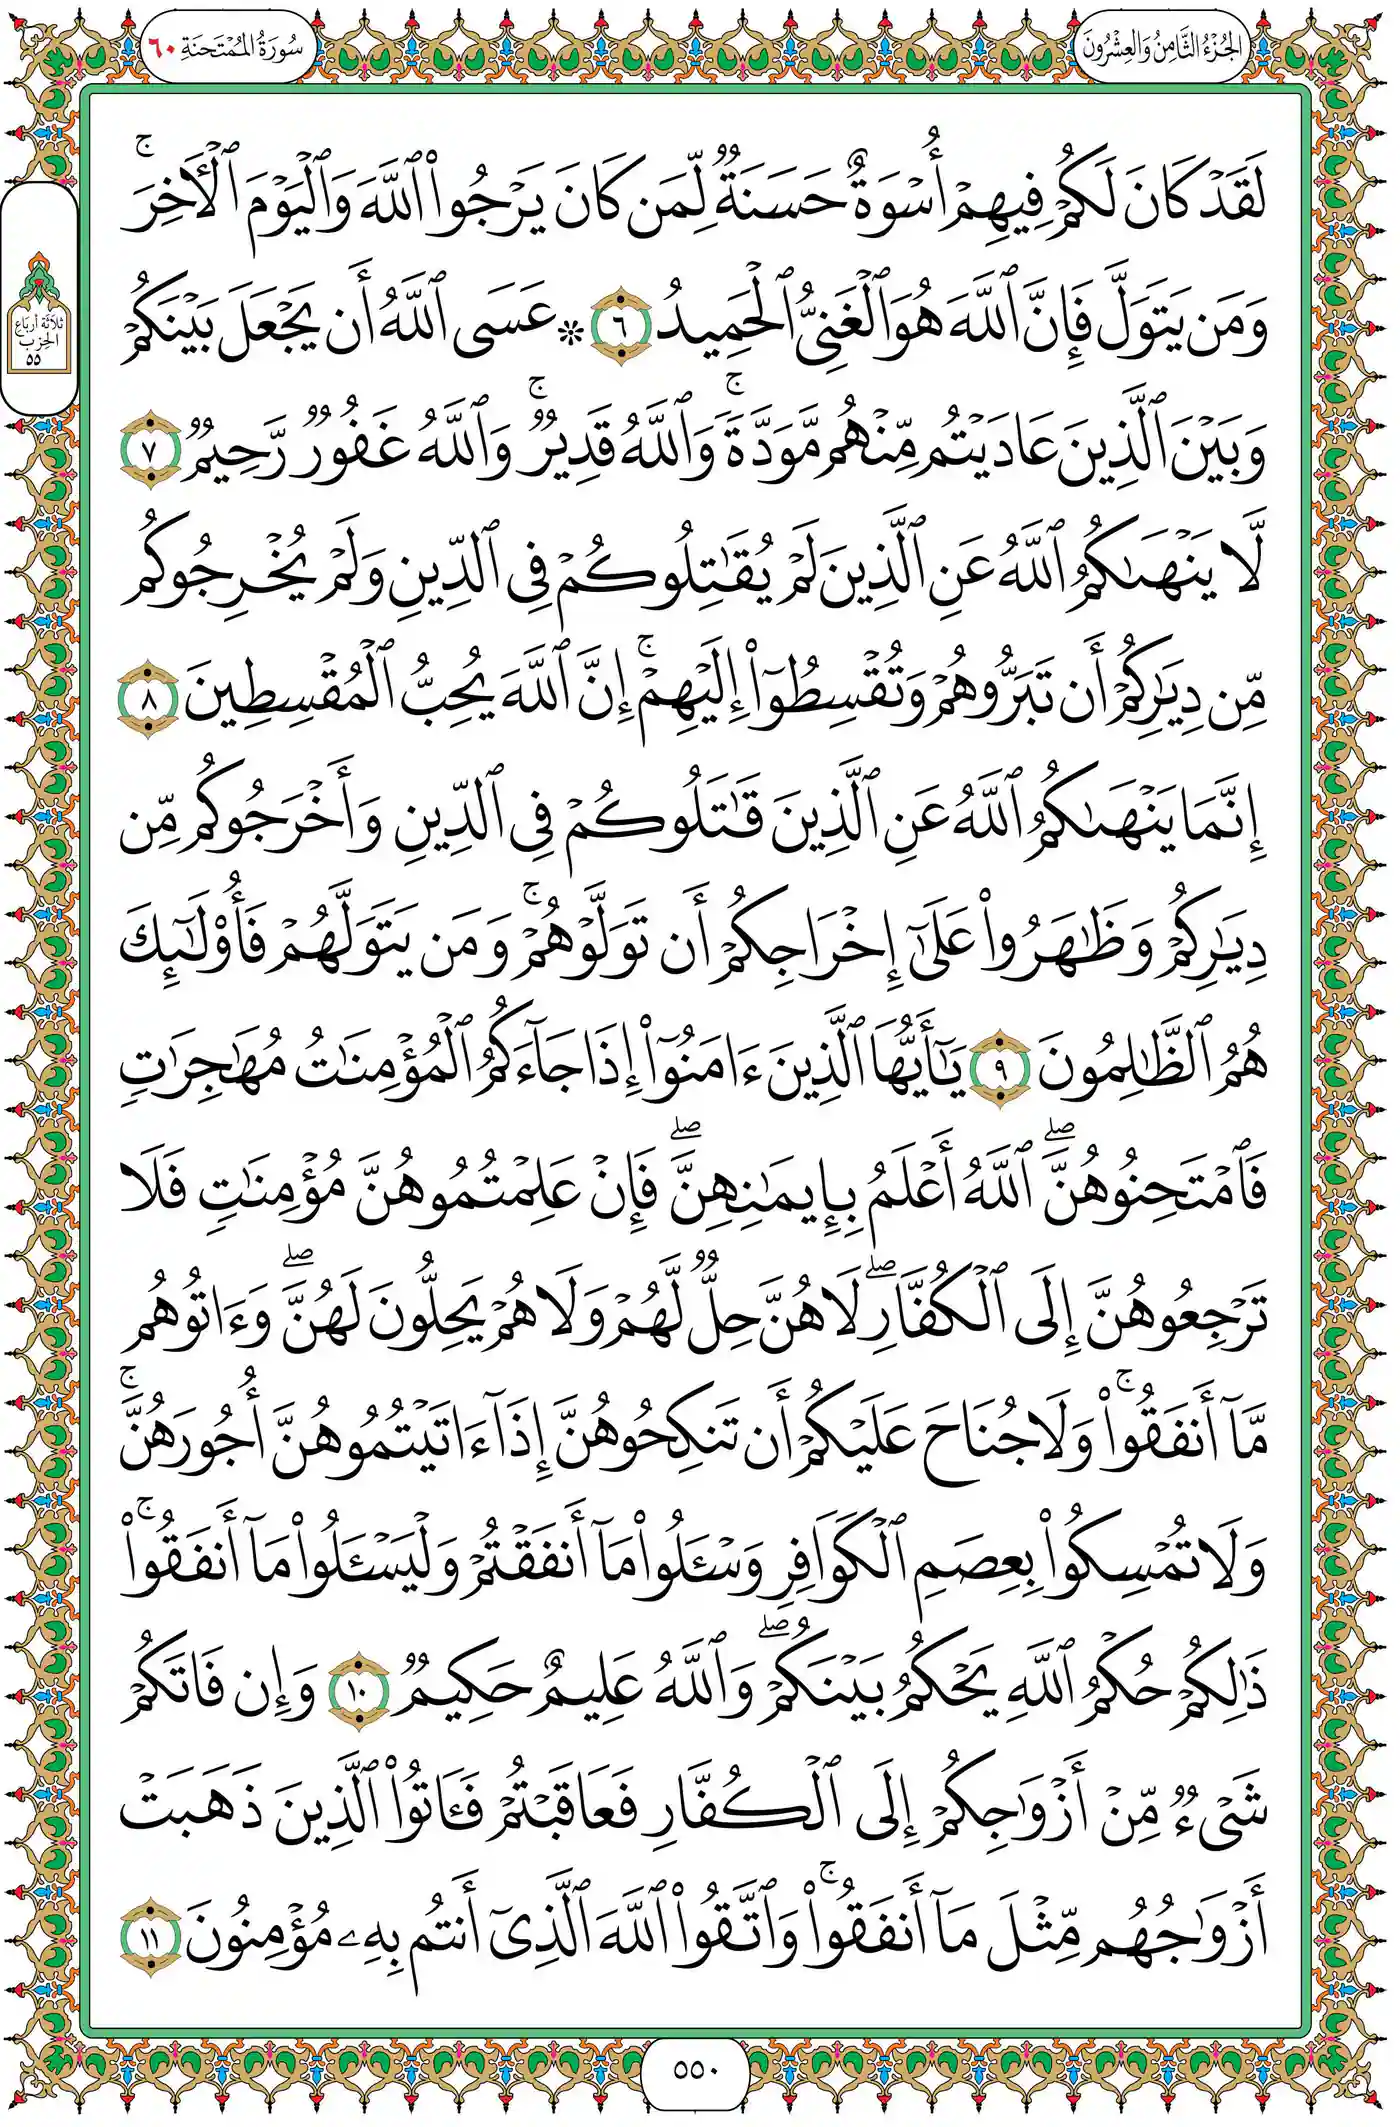 الجُزْءُ الثَّامِنُ وَالعِشْرُونَ
سُورَةُ المُمْتَحنَةِ ٦٠
لَقَدۡ كَانَ لَكُمۡ فِيهِمۡ أُسۡوَةٌ حَسَنَةٞ لِّمَن كَانَ يَرۡجُواْ ٱللَّهَ وَٱلۡيَوۡمَ ٱلۡأٓخِرَۚ
وَمَن يَتَوَلَّ فَإِنَّ ٱللَّهَ هُوَ ٱلۡغَنِيُّ ٱلۡحَمِيدُ ٦ ۞ عَسَى ٱللَّهُ أَن يَجۡعَلَ بَيۡنَكُمۡ
وَبَيۡنَ ٱلَّذِينَ عَادَيۡتُم مِّنۡهُم مَّوَدَّةٗۚ وَٱللَّهُ قَدِيرٞۚ وَٱللَّهُ غَفُورٞ رَّحِيمٞ ٧
لَّا يَنۡهَىٰكُمُ ٱللَّهُ عَنِ ٱلَّذِينَ لَمۡ يُقَٰتِلُوكُمۡ فِي ٱلدِّينِ وَلَمۡ يُخۡرِجُوكُم
مِّن دِيَٰرِكُمۡ أَن تَبَرُّوهُمۡ وَتُقۡسِطُوٓاْ إِلَيۡهِمۡۚ إِنَّ ٱللَّهَ يُحِبُّ ٱلۡمُقۡسِطِينَ ٨
إِنَّمَا يَنۡهَىٰكُمُ ٱللَّهُ عَنِ ٱلَّذِينَ قَٰتَلُوكُمۡ فِي ٱلدِّينِ وَأَخۡرَجُوكُم مِّن
دِيَٰرِكُمۡ وَظَٰهَرُواْ عَلَىٰٓ إِخۡرَاجِكُمۡ أَن تَوَلَّوۡهُمۡۚ وَمَن يَتَوَلَّهُمۡ فَأُوْلَٰٓئِكَ
هُمُ ٱلظَّٰلِمُونَ ٩ يَٰٓأَيُّهَا ٱلَّذِينَ ءَامَنُوٓاْ إِذَا جَآءَكُمُ ٱلۡمُؤۡمِنَٰتُ مُهَٰجِرَٰتٖ
فَٱمۡتَحِنُوهُنَّۖ ٱللَّهُ أَعۡلَمُ بِإِيمَٰنِهِنَّۖ فَإِنۡ عَلِمۡتُمُوهُنَّ مُؤۡمِنَٰتٖ فَلَا
تَرۡجِعُوهُنَّ إِلَى ٱلۡكُفَّارِۖ لَا هُنَّ حِلّٞ لَّهُمۡ وَلَا هُمۡ يَحِلُّونَ لَهُنَّۖ وَءَاتُوهُم
مَّآ أَنفَقُواْۚ وَلَا جُنَاحَ عَلَيۡكُمۡ أَن تَنكِحُوهُنَّ إِذَآ ءَاتَيۡتُمُوهُنَّ أُجُورَهُنَّۚ
وَلَا تُمۡسِكُواْ بِعِصَمِ ٱلۡكَوَافِرِ وَسۡـَٔلُواْ مَآ أَنفَقۡتُمۡ وَلۡيَسۡـَٔلُواْ مَآ أَنفَقُواْۚ
ذَٰلِكُمۡ حُكۡمُ ٱللَّهِ يَحۡكُمُ بَيۡنَكُمۡۖ وَٱللَّهُ عَلِيمٌ حَكِيمٞ ١٠ وَإِن فَاتَكُمۡ
شَيۡءٞ مِّنۡ أَزۡوَٰجِكُمۡ إِلَى ٱلۡكُفَّارِ فَعَاقَبۡتُمۡ فَـَٔاتُواْ ٱلَّذِينَ ذَهَبَتۡ
أَزۡوَٰجُهُم مِّثۡلَ مَآ أَنفَقُواْۚ وَٱتَّقُواْ ٱللَّهَ ٱلَّذِيٓ أَنتُم بِهِۦ مُؤۡمِنُونَ ١١
ثلاثة أرباع
الحزب
٥٥
٥٥٠